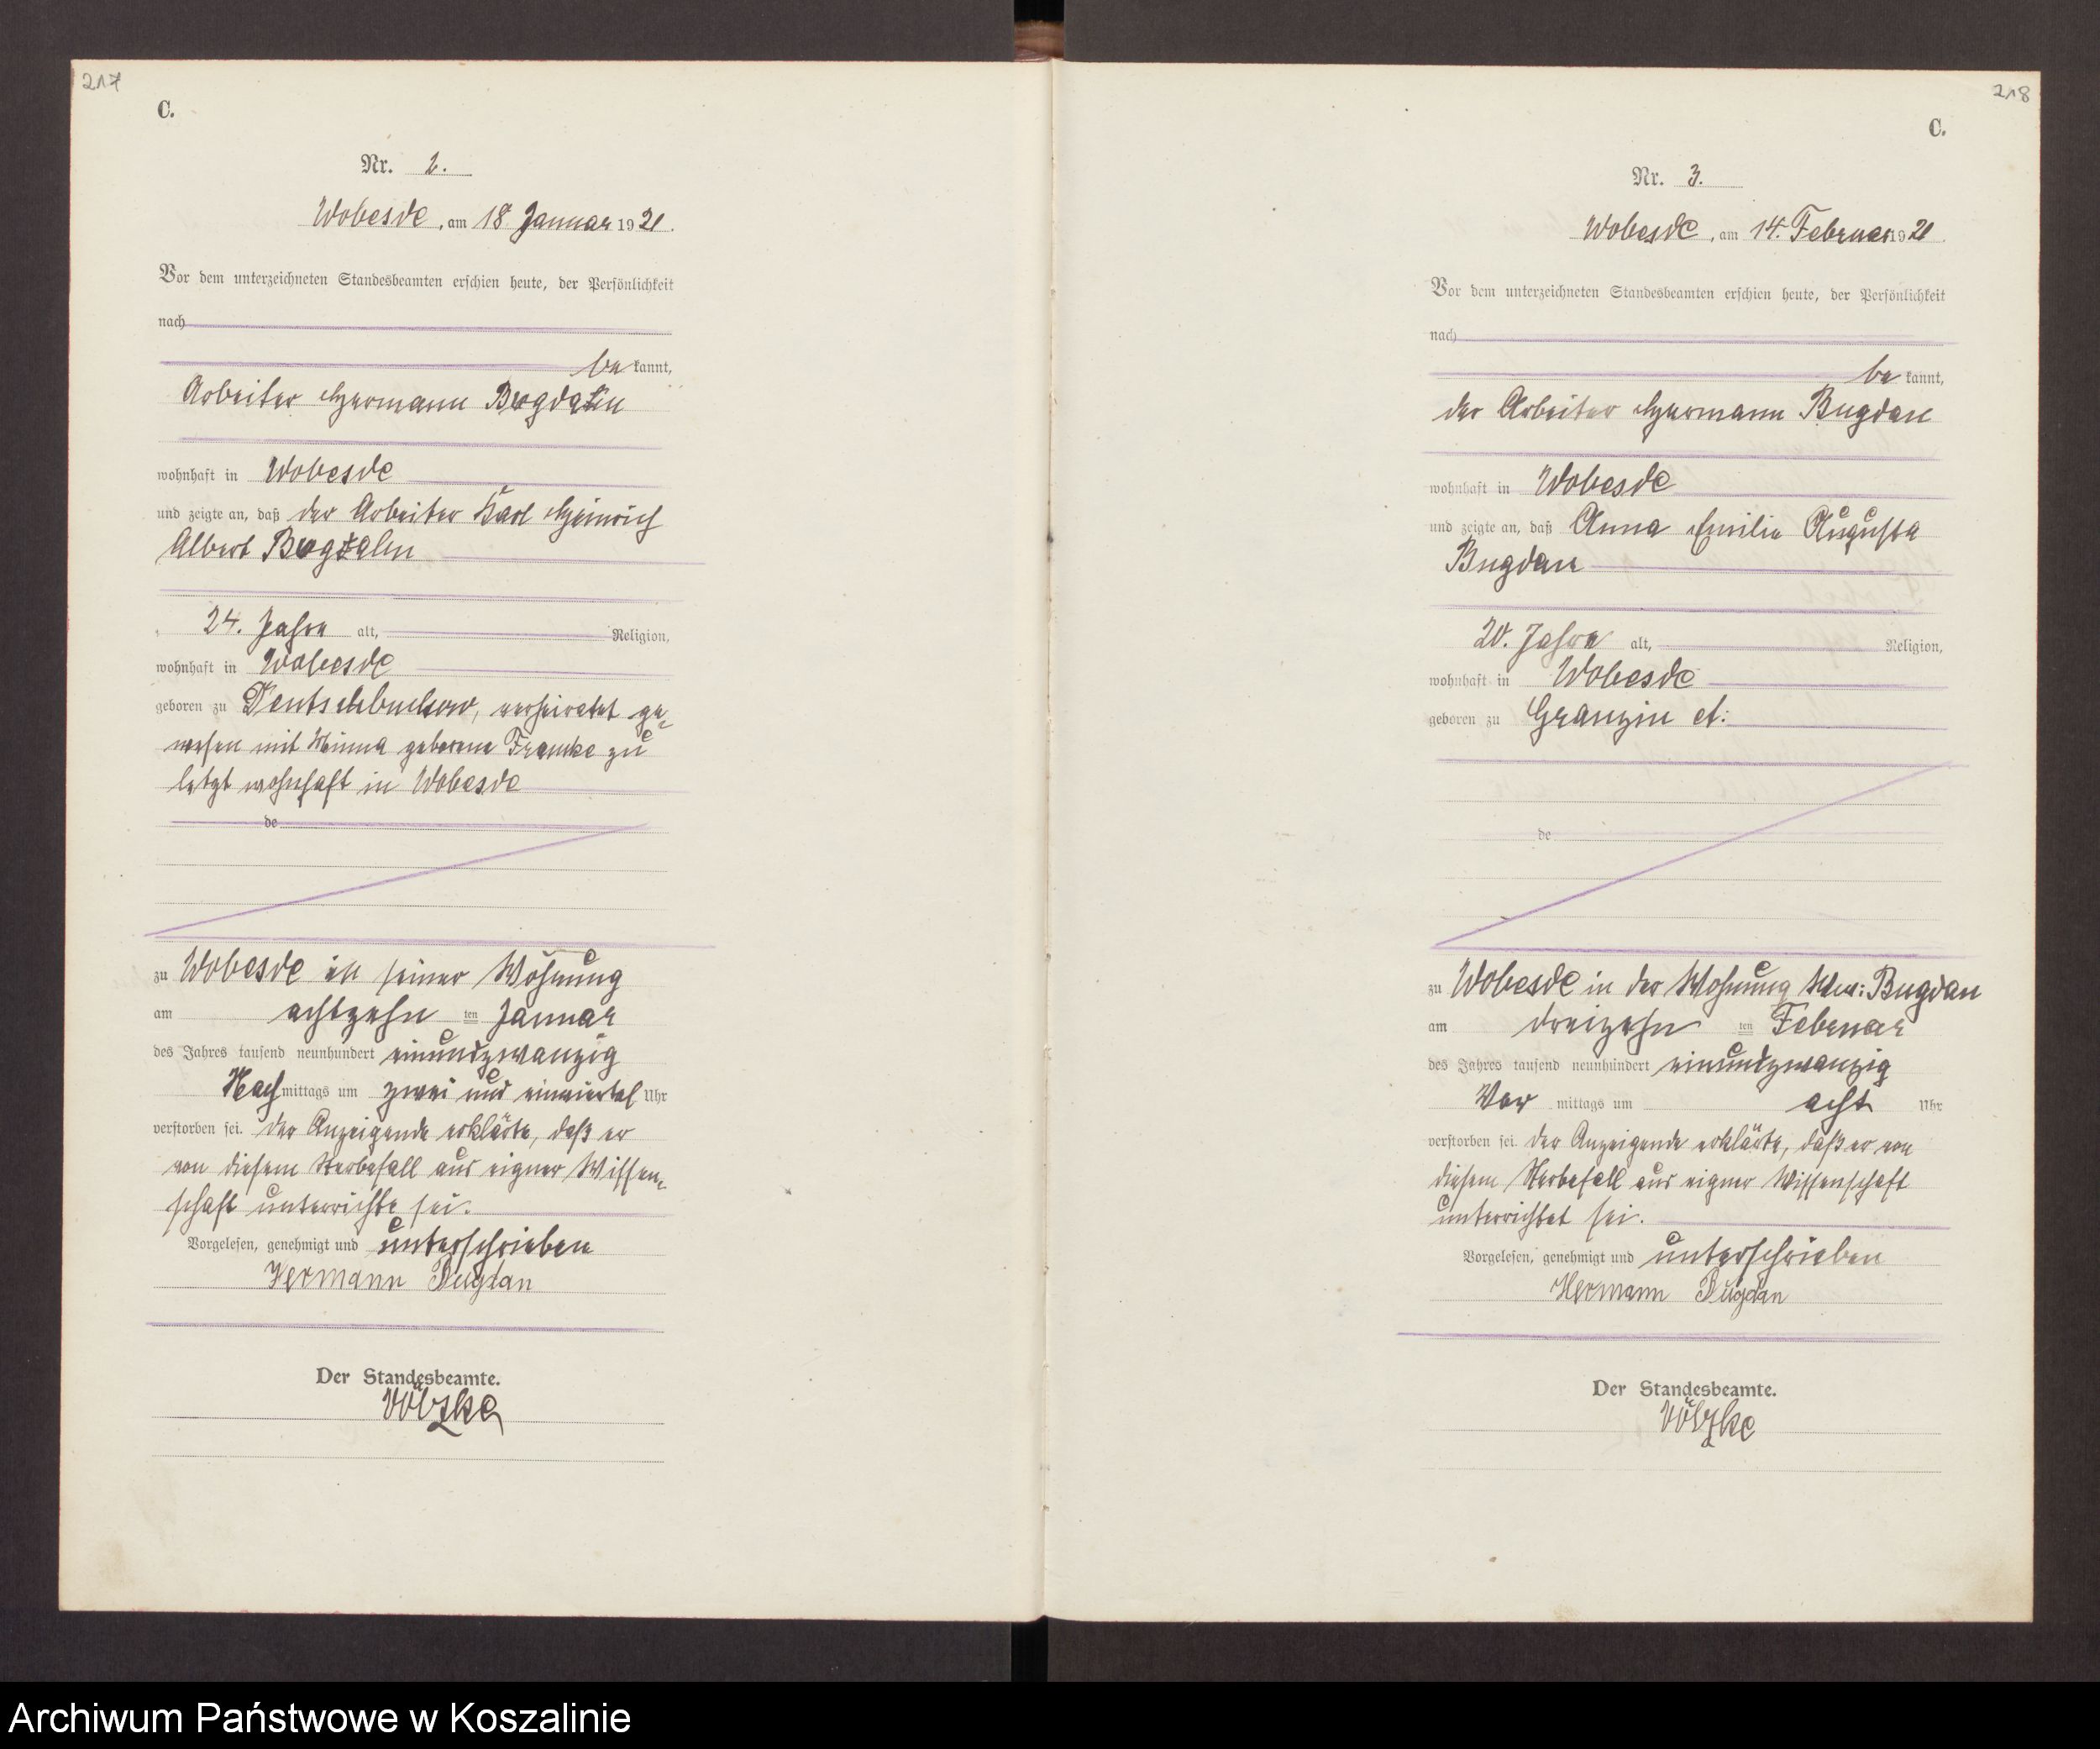 217
C.
Nr. 2.
Wobesde, am 18 Januar 1921.
Vor dem unterzeichneten Standesbeamten erschien heute, der Persönlichkeit
nach
be kannt,
Arbeiter Hermann
wohnhaft in Wobesde
und zeigte an, daß der Arbeiter Karl Heinrich
Albert
24. Jahre alt, Religion,
wohnhaft in Wobesde
geboren zu Deutschbuckow, verheiratet ge-
wesen mit Minna geborene Franke zu
letzt wohnhaft in Wobesde
de
zu Wobesde in seiner Wohnung
am achtzehn ten Januar
des Jahres tausend neunhundert einundzwanzig
Nach mittags um zwei und einviertel Uhr
verstorben sei. Der Anzeigende erklärte, daß er
von diesem Sterbefall aus eigner Wissen-
schaft unterrichte sei.
Vorgelesen, genehmigt und unterschrieben
Hermann Bugdan
Der Standesbeamte.
Völzke
218
C.
Nr. 3.
Wobesde, am 14. Februar 1921
Vor dem unterzeichneten Standesbeamten erschien heute, der Persönlichkeit
nach
be kannt,
der Arbeiter Hermann Bugdan
wohnhaft in Wobesde
und zeigte an, daß Anna Emilie Augusta
Bugdan
20. Jahre alt, Religion,
wohnhaft in Wobesde
geboren zu Granzin
de
zu Wobesde in der Wohnung Bugdan
am dreizehn ten Februar
des Jahres tausend neunhundert einundzwanzig
Vor mittags um acht Uhr
verstorben sei. Der Anzeigende erklärte, daß er von
diesem Sterbefall aus eigner Wissenschaft
unterrichtet sei.
Vorgelesen, genehmigt und unterschrieben
Hermann Bugdan
Der Standesbeamte.
Völzke
Archiwum Państwowe w Koszalinie